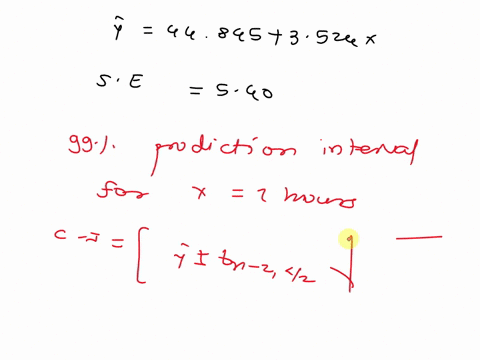 ŷ = 44.845+3.524x
S.E = 5.40
99.1. prediction interval
for x = 2 hours
C-I = [ ŷ ± tn-2, α/2